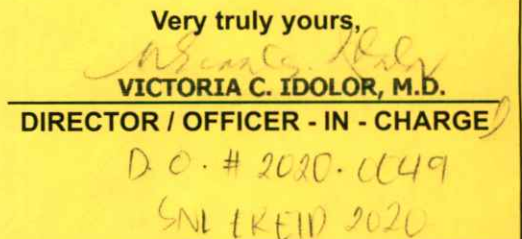 Very truly yours,
VICTORIA C. IDOLOR, M.D.
DIRECTOR / OFFICER - IN - CHARGE
D.O. # 2020.
2020